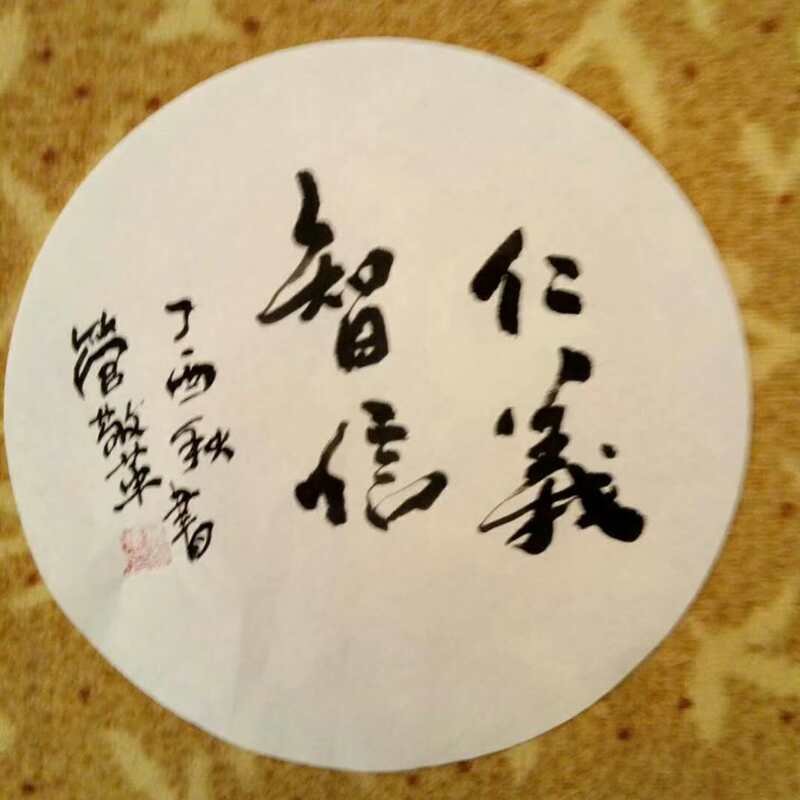 仁義
智信
丁酉秋書
管敬英